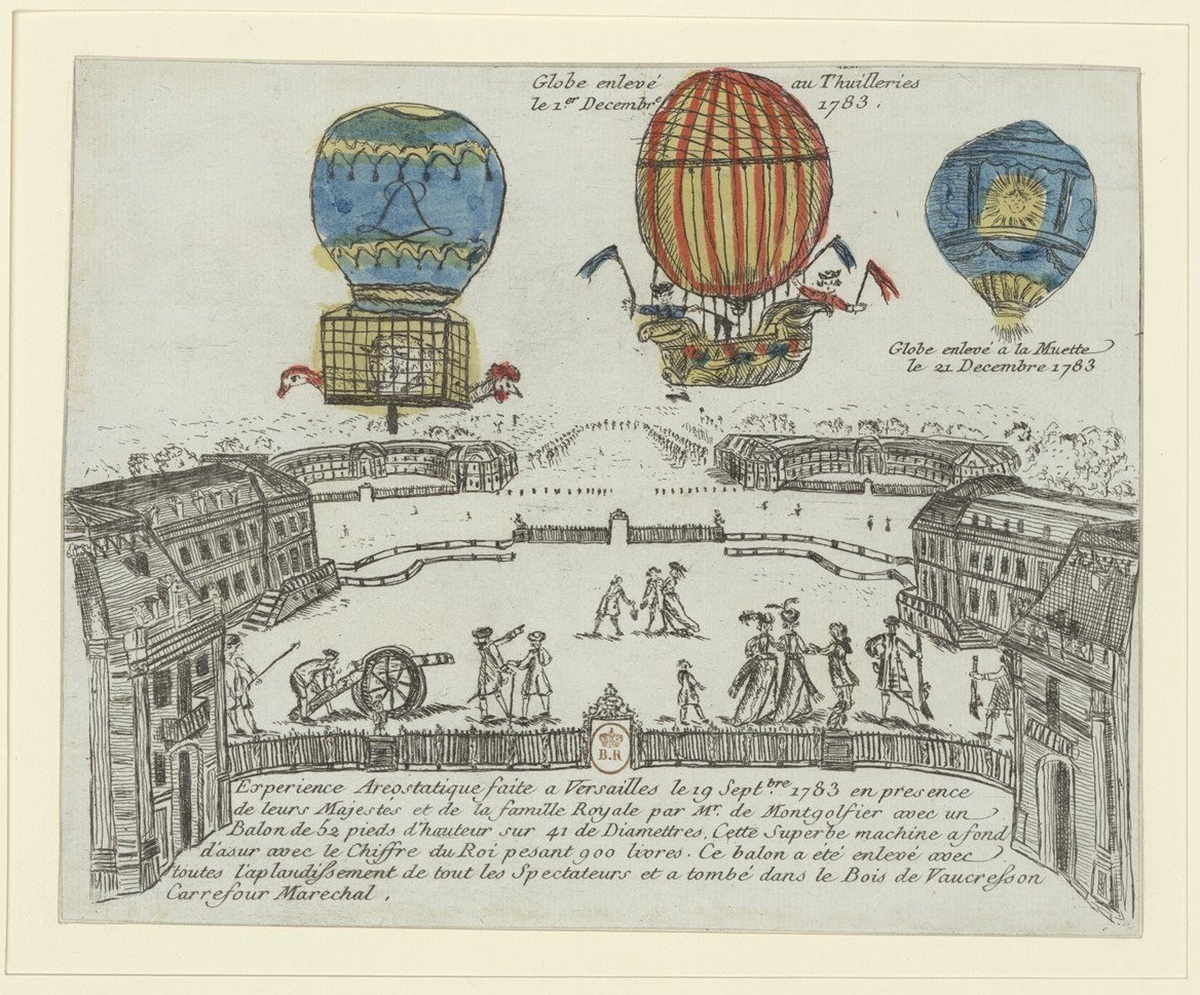 Globe enlevé au Thuilleries
le 1er Decembre 1783.
Globe enlevé a la Muette
le 21 Decembre 1783
B.R
Experience Areostatique faite a Versailles le 19 Sept.bre 1783 en presence
de leurs Majestés et de la famille Royale par Mr. de Montgolfier avec un
Balon de 52 pieds d'hauteur sur 41 de Diamettres, Cette Superbe machine a fond
d'asur avec le Chiffre du Roi pesant 900 livres. Ce balon a été enlevé avec
toutes l'aplaudissement de tout les Spectateurs et a tombé dans le Bois de Vaucresson
Carrefour Marechal.